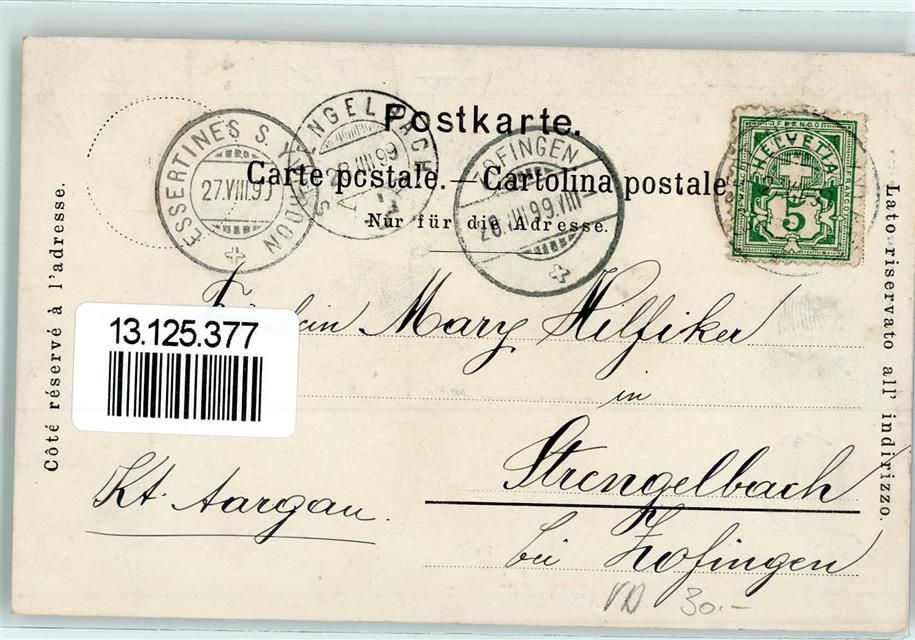 Postkarte.
Carte postale. — Cartolina postale
Nur für die Adresse.
Côté réservé à l'adresse.
Lato riservato all' indirizzo.
ESSERTINES S. YVERDON
27.VIII.99
STRENGELBACH
28.VIII.99
ZOFINGEN
28.VIII.99.VIII
FRANCO
HELVETIA
5
13.125.377
Fräulein Mary Hilfiker
in
Strengelbach
bei Zofingen
Kt. Aargau.
VD 30.-